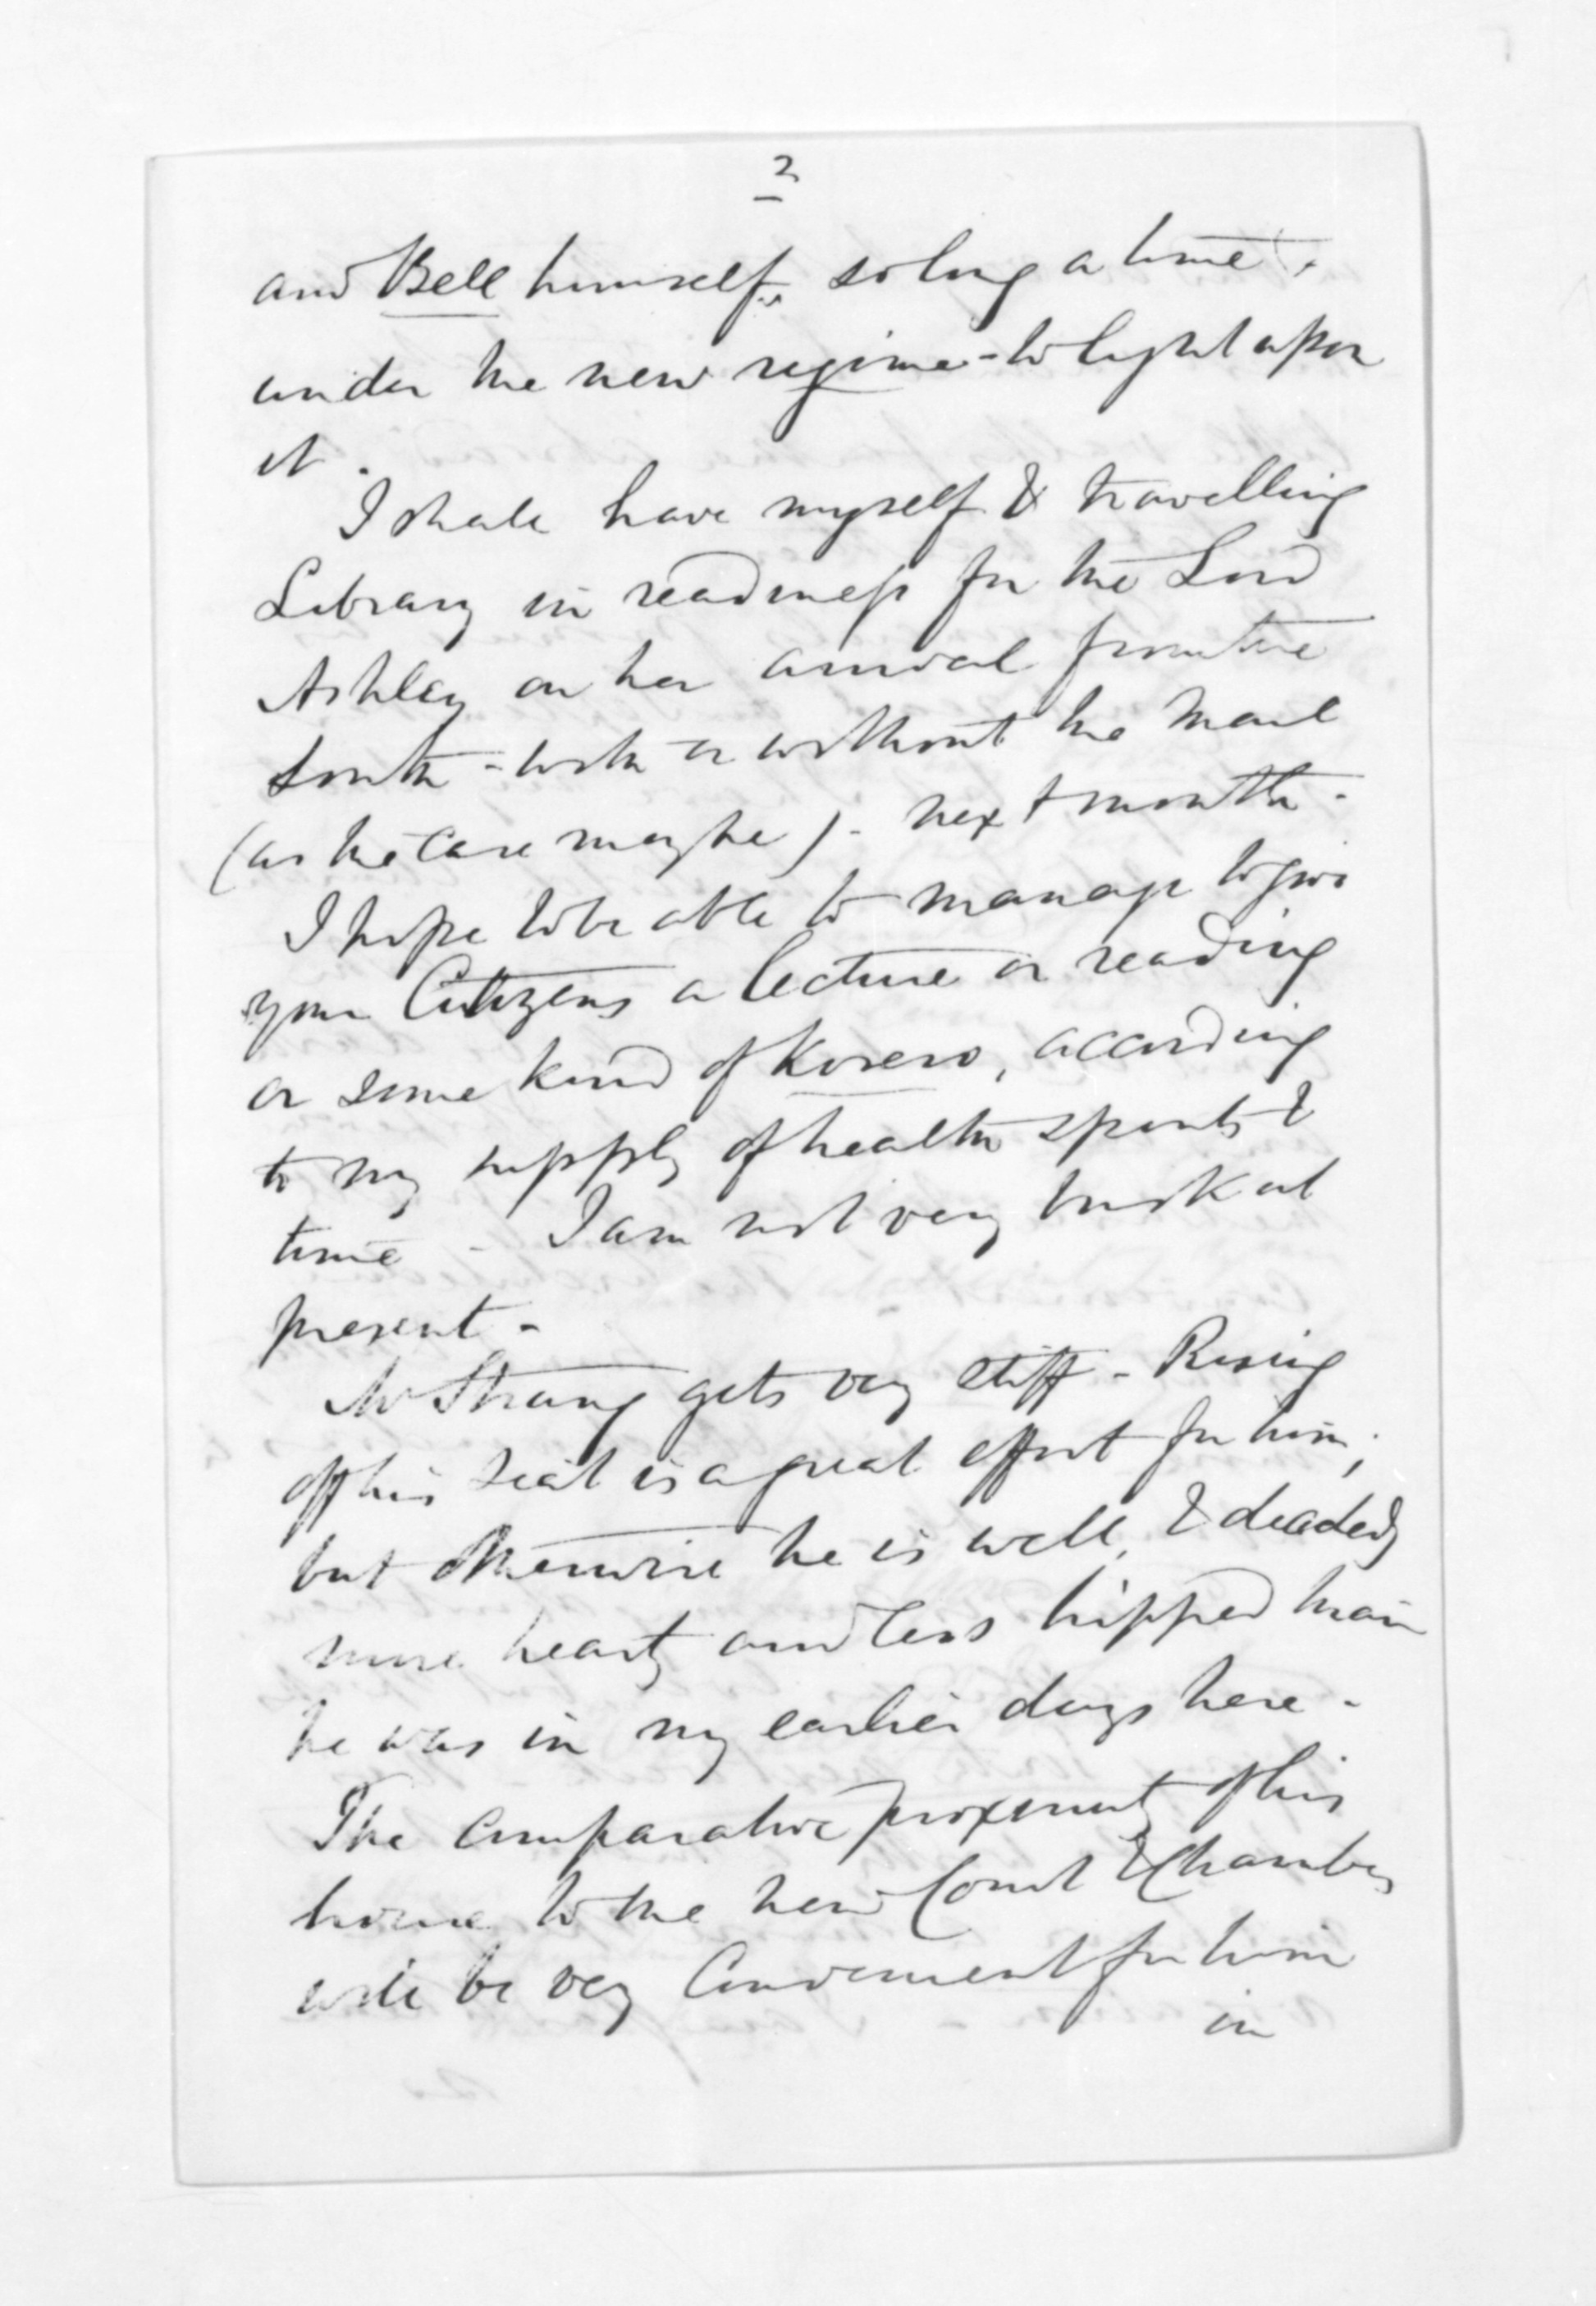 2
and Bell himself, so long a time.
under the new regime - to light upon
it.
I shall have myself & travelling
Library in readiness for the Lord
Ashley on her arrival from the
South - with or without the Mail
(as the case may be) - next month.
I hope to be able to manage to give
your Citizens a lecture or reading
or some kind of Korero, according
to my supply of health spirits &
time - I am not very brisk at
present -
Mr Strang gets very stiff - Rising
off his seat is a great effort for him;
but otherwise he is well, & decidedly
more hearty and less hipped than
he was in my earlier days here -
The comparative proximity of his
house to the new Court & Chambers
will be very convenient for him
in